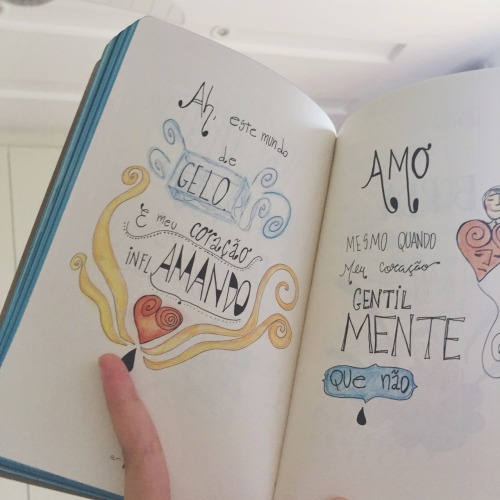 Ah, este mundo
de
GELO.
E meu coração
inflAMANDO
AMO
MESMO QUANDO
Meu coração
GENTIL
MENTE
QUE não